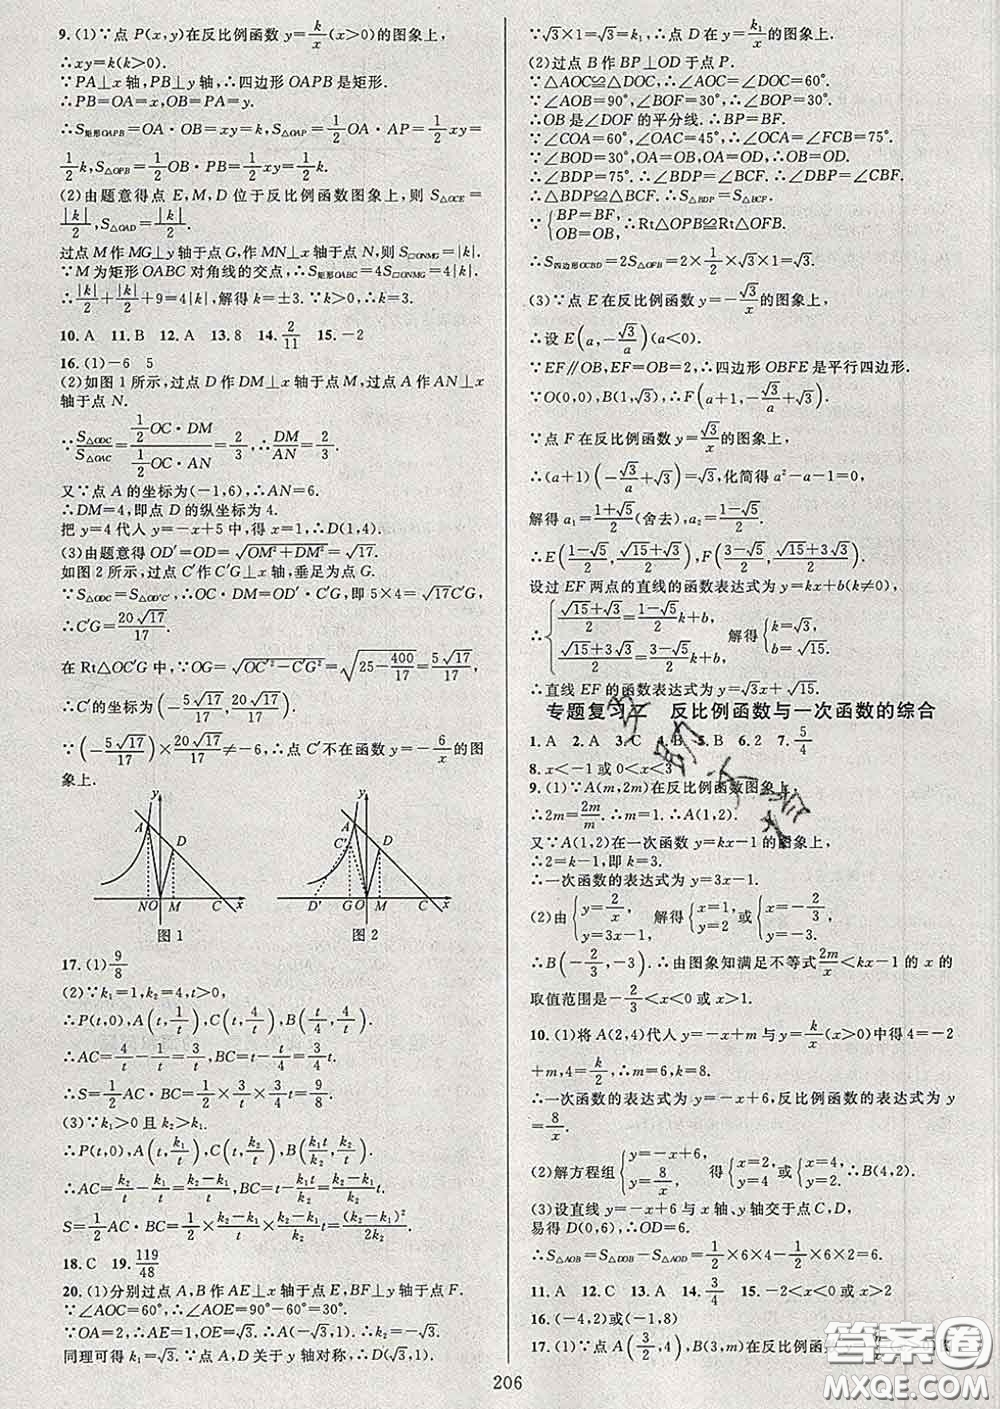 9. (1)∵点 P(x,y)在反比例函数 y=k/x(x>0)的图象上,
∴xy=k(k>0).
∵PA⊥x 轴,PB⊥y 轴,∴四边形 OAPB 是矩形.
∴PB=OA=x,OB=PA=y.
∴S矩形OAPB=OA·OB=xy=k,S△OAP=1/2OA·AP=1/2xy=
1/2k,S△OPB=1/2OB·PB=1/2xy=1/2k.
(2)由题意得点 E,M,D 位于反比例函数图象上,则 S△OCE=
|k|/2,S△OAD=|k|/2.
过点 M 作 MG⊥y 轴于点 G,作 MN⊥x 轴于点 N,则 S□ONMG=|k|.
∵M 为矩形 OABC 对角线的交点,∴S矩形OABC=4S□ONMG=4|k|.
∴|k|/2+|k|/2+9=4|k|,解得 k=±3. ∵k>0,∴k=3.
10. A 11. B 12. A 13. 8 14. 2/11 15. -2
16. (1)-6 5
(2)如图 1 所示,过点 D 作 DM⊥x 轴于点 M,过点 A 作 AN⊥x
轴于点 N.
∵S△ODC/S△OAC=(1/2OC·DM)/(1/2OC·AN)=2/3,∴DM/AN=2/3.
又∵点 A 的坐标为(-1,6),∴AN=6.
∴DM=4,即点 D 的纵坐标为 4.
把 y=4 代入 y=-x+5 中,得 x=1,∴D(1,4).
(3)由题意得 OD′=OD=√(OM²+DM²)=√17.
如图 2 所示,过点 C′作 C′G⊥x 轴,垂足为点 G.
∵S△ODC=S△OD′C′,∴OC·DM=OD′·C′G,即 5×4=√17C′G.
∴C′G=20√17/17.
在 Rt△OC′G 中,∵OG=√(OC′²-C′G²)=√(25-400/17)=5√17/17,
∴C′的坐标为(-5√17/17,20√17/17).
∵(-5√17/17)×20√17/17≠-6,∴点 C′不在函数 y=-6/x的图
象上.
y A D N O M C x
y A C′ D D′ G O M C x
图 1 图 2
17. (1)9/8
(2)∵k₁=1,k₂=4,t>0,
∴P(t,0),A(t,1/t),C(t,4/t),B(t/4,4/t).
∴AC=4/t-1/t=3/t,BC=t-t/4=3/4t.
∴S=1/2AC·BC=1/2×3/t×3/4t=9/8.
(3)∵k₁>0 且 k₂>k₁.
∴P(t,0),A(t,k₁/t),C(t,k₂/t),B(k₁t/k₂,k₂/t).
∴AC=k₂/t-k₁/t=(k₂-k₁)/t,BC=t-k₁t/k₂=(k₂-k₁)/k₂t.
S=1/2AC·BC=1/2×(k₂-k₁)/t×(k₂-k₁)/k₂t=(k₂-k₁)²/2k₂.
18. C 19. 119/48
20. (1)分别过点 A,B 作 AE⊥x 轴于点 E,BF⊥y 轴于点 F.
∵∠AOC=60°,∴∠AOE=90°-60°=30°.
∵OA=2,∴AE=1,OE=√3. ∴点 A(√3,1).
同理可得 k=√3. ∵点 A,D 关于 y 轴对称,∴D(-√3,1).
∵√3×1=√3=k₁,∴点 D 在 y=k₁/x的图象上.
(2)过点 B 作 BP⊥OD 于点 P.
∵△AOC≌△DOC,∴∠AOC=∠DOC=60°.
∵∠AOB=90°,∠BOF=30°,∴∠BOD=30°.
∴OB 是∠DOF 的平分线.∴BP=BF.
∵∠COA=60°,∠OAC=45°,∴∠OCA=∠FCB=75°.
∵∠BOD=30°,OA=OB=OD,∴∠ODB=75°.
∴∠BDP=75°. ∴∠BDP=∠BCF.
∴△BDP≌△BCF. ∴S△BDP=S△BCF.
∵{BP=BF, OB=OB,∴Rt△OPB≌Rt△OFB.
∴S四边形OCBD=2S△OFB=2×1/2×√3×1=√3.
(3)∵点 E 在反比例函数 y=-√3/x的图象上,
∴设 E(a,-√3/a)(a<0).
∵EF∥OB,EF=OB=2,∴四边形 OBFE 是平行四边形.
∵O(0,0),B(1,√3),∴F(a+1,-√3/a+√3).
∵点 F 在反比例函数 y=√3/x的图象上,
∴(a+1)(-√3/a+√3)=√3,化简得 a²-a-1=0.
解得 a₁=(1+√5)/2(舍去),a₂=(1-√5)/2.
∴E((1-√5)/2,(√15+√3)/2),F((3-√5)/2,(√15+3√3)/2).
设过 EF 两点的直线的函数表达式为 y=kx+b(k≠0),
∴{(√15+√3)/2=(1-√5)/2k+b, (√15+3√3)/2=(3-√5)/2k+b, 解得{k=√3, b=√15.
∴直线 EF 的函数表达式为 y=√3x+√15.
专题复习二 反比例函数与一次函数的综合
1. A 2. A 3. C 4. B 5. B 6. 2 7. 5/4
8. x<-1 或 0<x<3
9. (1)∵A(m,2m)在反比例函数图象上,
∴2m=2m/m. ∴m=1. ∴A(1,2).
又∵A(1,2)在一次函数 y=kx-1 的图象上,
∴2=k-1,即 k=3.
∴一次函数的表达式为 y=3x-1.
(2)由{y=2/x, y=3x-1 解得{x=1, y=2 或{x=-2/3, y=-3.
∴B(-2/3,-3). ∴由图象知满足不等式2m/x<kx-1 的 x 的
取值范围是-2/3<x<0 或 x>1.
10. (1)将 A(2,4)代入 y=-x+m 与 y=k/x(x>0)中得 4=-2
+m,4=k/2,∴m=6,k=8.
∴一次函数的表达式为 y=-x+6,反比例函数的表达式为 y
=8/x.
(2)解方程组{y=-x+6, y=8/x, 得{x=2, y=4 或{x=4, y=2,∴B(4,2).
(3)设直线 y=-x+6 与 x 轴、y 轴交于点 C,D,
易得 D(0,6),∴OD=6.
∴S△AOB=S△DOB-S△AOD=1/2×6×4-1/2×6×2=6.
11. A 12. C 13. A 14. 3/4 15. -2<x<0 或 x>2
16. (-4,2)或(-1,8)
17. (1)∵点 A(3/2,4),B(3,m)在反比例函
206
答案圈
MXQE.COM